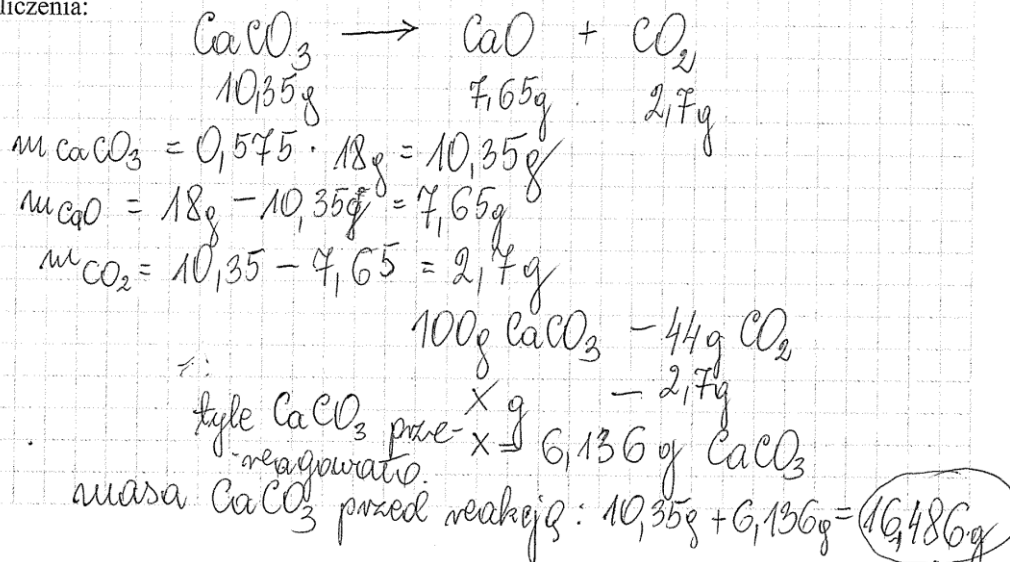 liczenia:
CaCO₃ → CaO + CO₂
10,35g 7,65g 2,7g
m CaCO₃ = 0,575 · 18g = 10,35g
m CaO = 18g - 10,35g = 7,65g
m CO₂ = 10,35 - 7,65 = 2,7g
100g CaCO₃ - 44g CO₂
x g - 2,7g
tyle CaCO₃ prze- x = 6,136 g CaCO₃
-reagowało.
masa CaCO₃ przed reakcją: 10,35g + 6,136g = 16,486g